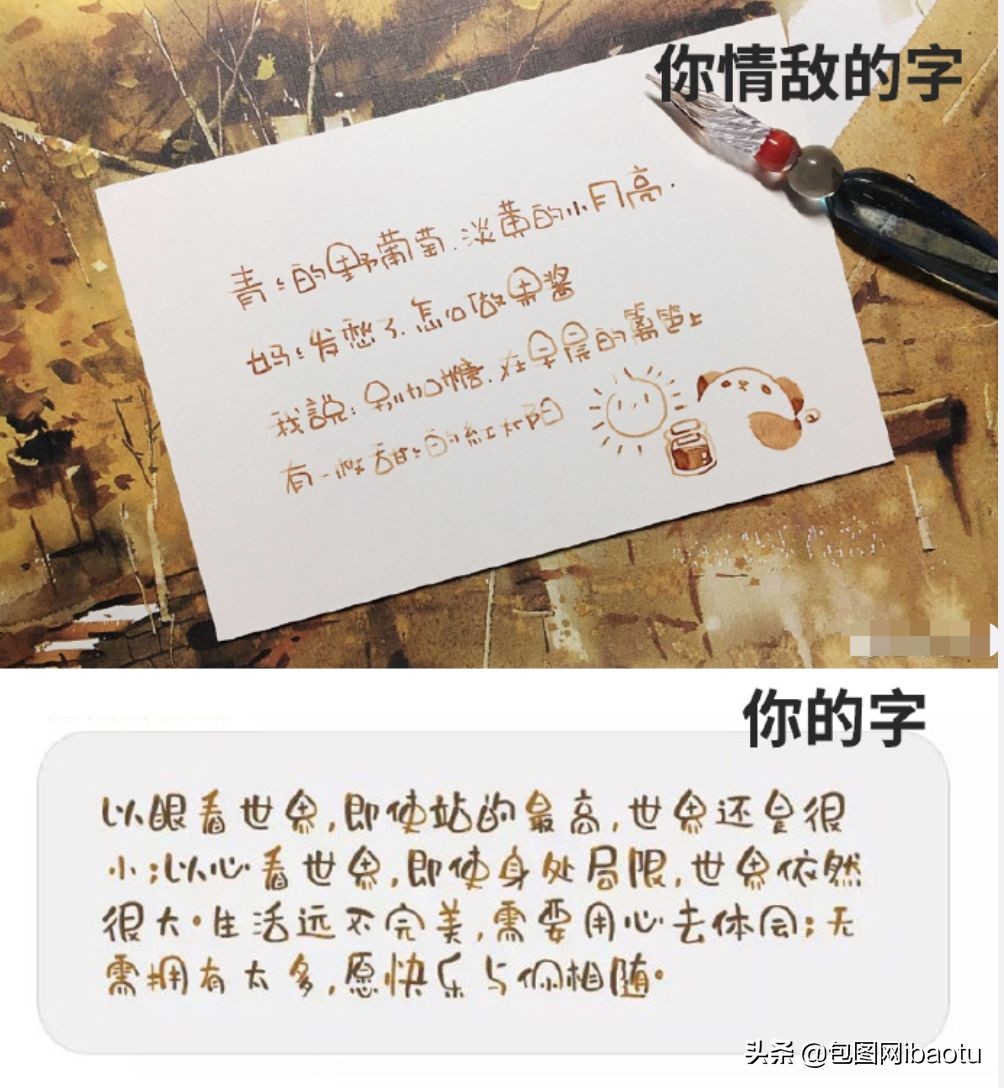 你情敌的字
青々的野葡萄.淡黄的小月亮.
妈々发愁了.怎么做果酱
我説:别加糖.在早晨的篱笆上
有一枚甜々的紅太阳
你的字
以眼看世界,即使站的最高,世界还是很
小;以心看世界,即使身处局限,世界依然
很大。生活远不完美,需要用心去体会;无
需拥有太多,愿快乐与你相随。
头条 @包图网ibaotu